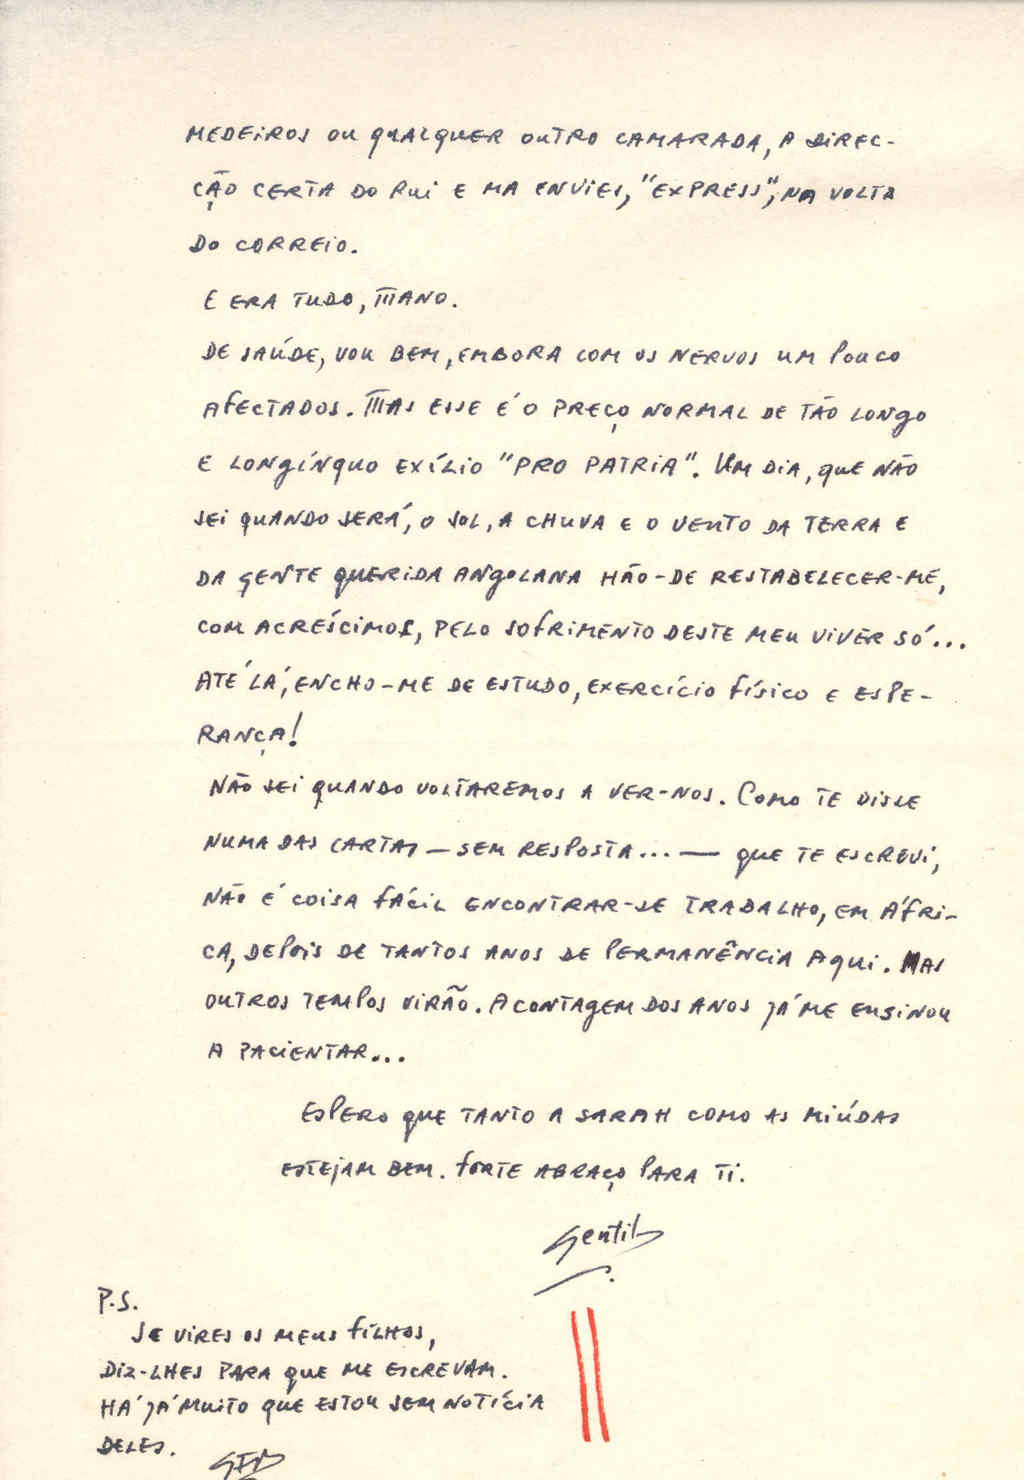 MEDEIROS OU QUALQUER OUTRO CAMARADA, A DIREC-
ÇÃO CERTA DO RUI E MA ENVIES, "EXPRESS", NA VOLTA
DO CORREIO.
E ERA TUDO, MANO.
DE SAÚDE, VOU BEM, EMBORA COM OS NERVOS UM POUCO
AFECTADOS. MAS ESSE É O PREÇO NORMAL DE TÃO LONGO
E LONGÍNQUO EXÍLIO "PRO PATRIA". UM DIA, QUE NÃO
SEI QUANDO SERÁ, O SOL, A CHUVA E O VENTO DA TERRA E
DA GENTE QUERIDA ANGOLANA HÃO-DE RESTABELECER-ME,
COM ACRÉSCIMOS, PELO SOFRIMENTO DESTE MEU VIVER SÓ...
ATÉ LÁ, ENCHO-ME DE ESTUDO, EXERCÍCIO FÍSICO E ESPE-
RANÇA!
NÃO SEI QUANDO VOLTAREMOS A VER-NOS. COMO TE DISSE
NUMA DAS CARTAS — SEM RESPOSTA... — QUE TE ESCREVI,
NÃO É COISA FÁCIL ENCONTRAR-SE TRABALHO, EM ÁFRI-
CA, DEPOIS DE TANTOS ANOS DE PERMANÊNCIA AQUI. MAS
OUTROS TEMPOS VIRÃO. A CONTAGEM DOS ANOS JÁ ME ENSINOU
A PACIENTAR...
ESPERO QUE TANTO A SARAH COMO AS MIÚDAS
ESTEJAM BEM. FORTE ABRAÇO PARA TI.
Gentil
P.S.
SE VIRES OS MEUS FILHOS,
DIZ-LHES PARA QUE ME ESCREVAM.
HÁ JÁ MUITO QUE ESTOU SEM NOTÍCIA
DELES.